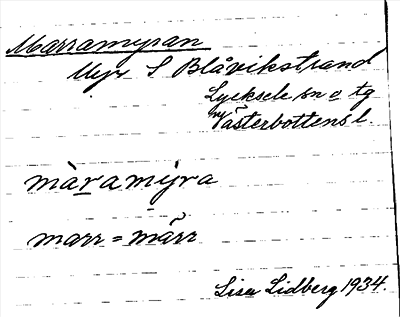 Marramyran
Myr S Blåvikstrand
Lycksele sn o tg
Västerbottens l.
màramy̆ra
marr = märr
Lisa Lidberg 1934.